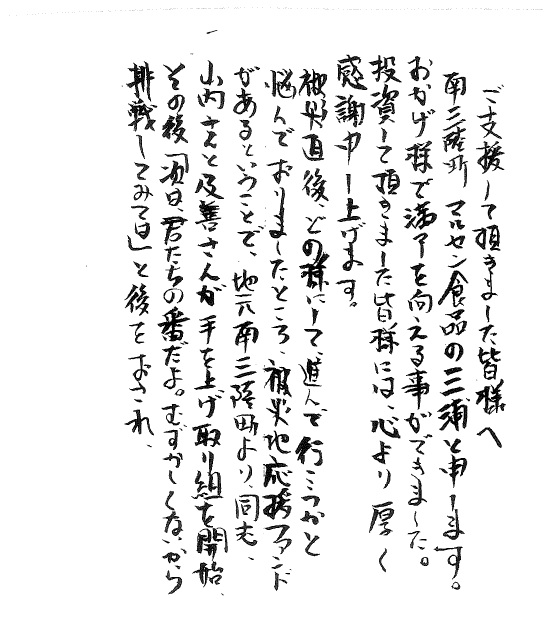 ご支援して頂きました皆様へ
南三陸町 マルセン食品の三浦と申します。
おかげ様で満了を向える事ができました。
投資して頂きました皆様には、心より厚く
感謝申し上げます。
被災直後どの様にして、進んで行こうかと
悩んでおりましたところ、被災地応援ファンド
があるということで、地元南三陸町より、同志、
山内さんと及善さんが手を上げ取り組を開始、
その後「次は、君たちの番だよ。むずかしくないから
挑戦してみて
と後をおされ、